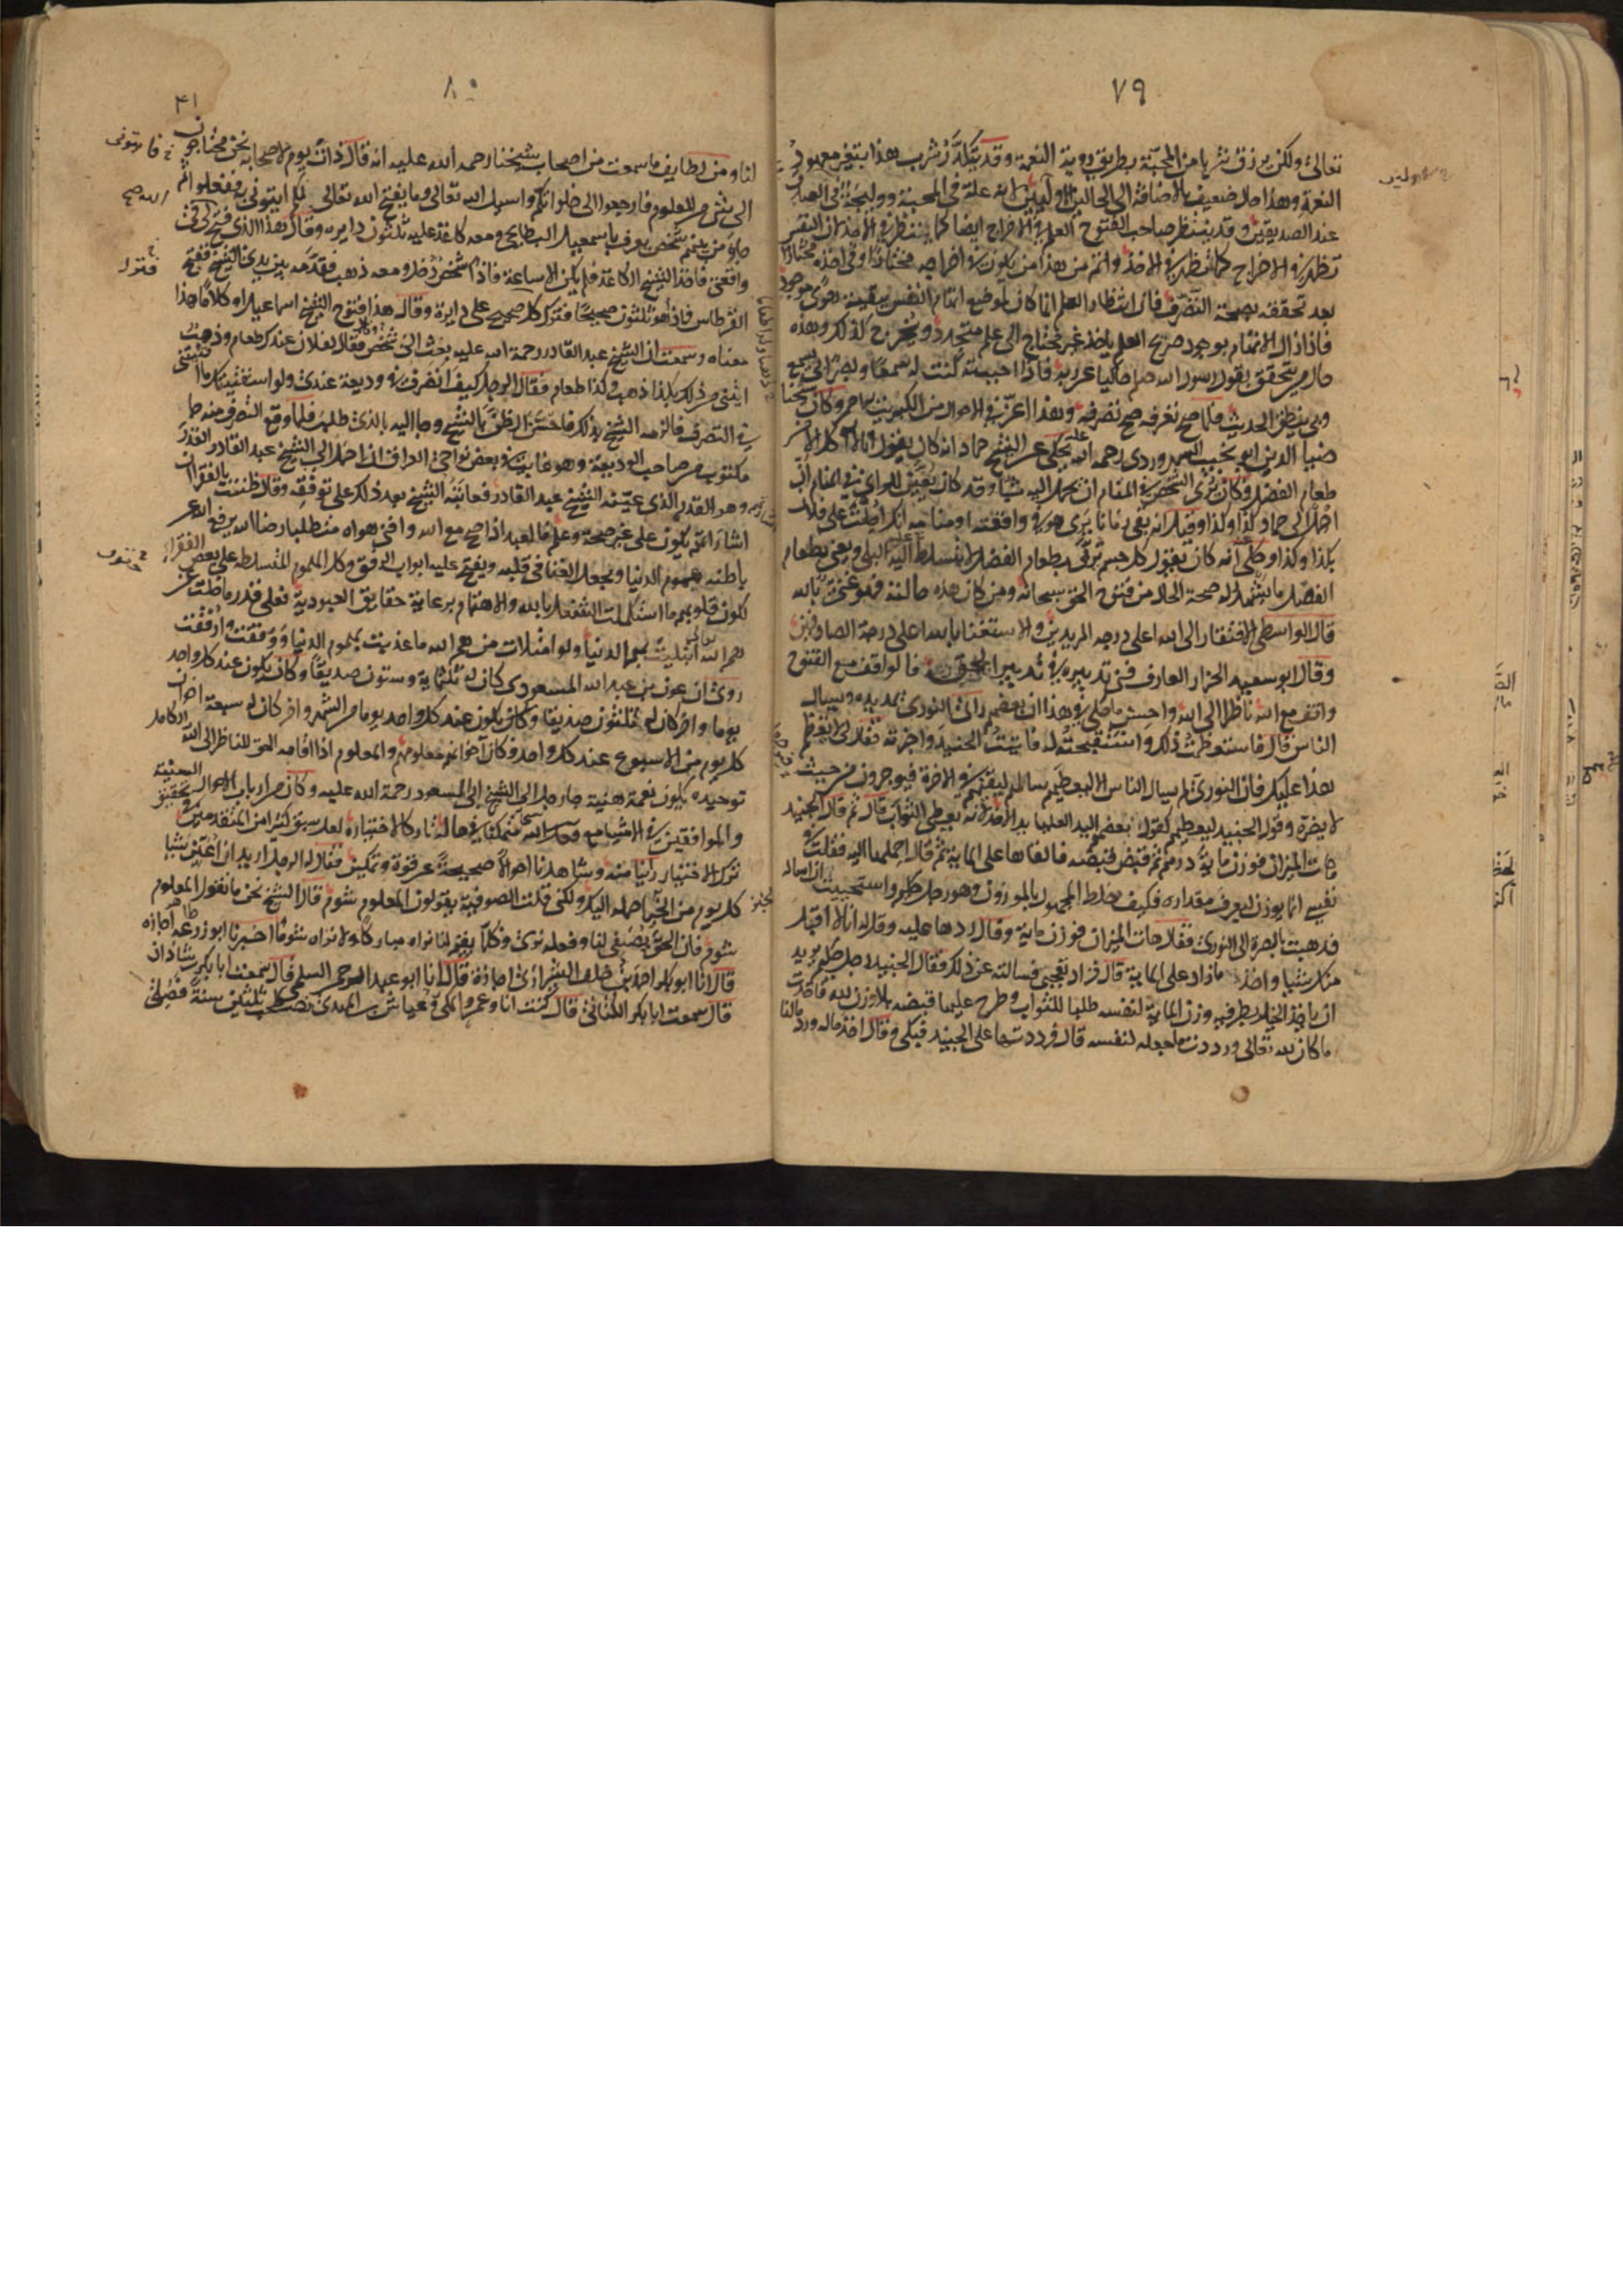 ٧٩
تعالى ولكن يرزق شربا من المحبة بطريق روية النعمة وقد يتكدر شرب هذا بتغير معهود
النعمة وهذا حال ضعيف بالاضافة الى الحالين الاولين لانه علة في المحبة ووليجة في الصدق
عند الصديقين وقد ينتظر صاحب الفتوح العلم في الاخراج ايضا كما ينتظر في الاخذ لان النفس
تظهر في الاخراج كما تظهر في الاخذ واتم من هذا من يكون في اخراجه مختارا وفي اخذه مختارا
بعد تحققه بصحة التصرف فان انتظار العلم انما كان لموضع اتهام النفس بقية هوى موجود
فاذا زال الاتهام بوجود صريح العلم ياخذ غير محتاج الى علم متجدد ويخرج كذلك وهذه
حال من تحقق بقول رسول الله صلم حاكيا عن ربه فاذا احببته كنت له سمعا وبصرا بي يسمع
وبي ينطق الحديث فلما صح تعرفه صح تصرفه وهذا اعز في الاحوال من الكبريت الاحمر وكان شيخنا
ضيا الدين ابو نجيب السهروردي رحمه الله يحكي عن الشيخ حماد انه كان يقول انا لا آكل الا من
طعام الفضل وكان يرى الشخص في المنام ان يحمل اليه شيا وقد كان يعين للرائي في المنام ان
احمل الى حماد كذا وكذا وقيل انه بقي زمانا يرى هو في واقعته او منامه انك احلت على فلان
بكذا وكذا وحكي انه كان يقول كل جسم تربى بطعام الفضل لا يتسلط عليه البلى ويعني بطعام
الفضل ما يشهد له صحة الحال من فتوح الحق سبحانه ومن كان هذه حالته فهو غني بالله
قال الواسطي الافتقار الى الله اعلى درجة المريدين والاستغنا بالله اعلى درجة الصادقين
وقال ابو سعيد الخزار العارف فني تدبيره في تدبير الحق فالواقف مع الفتوح
واقف مع الله ناظر الى الله واحسن ما حكي في هذا ان بعضهم راى النوري يمد يديه ويسال
الناس قال فاستعظمت ذلك واستقبحته له فاتيت الجنيد واخبرته فقال لي لا يعظم
هذا عليك فان النوري لم يسال الناس الا ليعطيهم سالهم ليثيبهم في الاخرة فيوجرون من حيث
لا يضره وقول الجنيد ليعطيهم كقول بعضهم اليد العليا يد الاخذ لانه يعطي الثواب قال ثم قال الجنيد
هات الميزان فوزن ماية درهم ثم قبض قبضة فالقاها على الماية ثم قال احملها اليه فقلت في
نفسي انما يوزن ليعرف مقداره فكيف خلط المجهول بالموزون وهو رجل حكيم واستحييت ان اساله
فذهبت بالصرة الى النوري فقال هات الميزان فوزن ماية وقال ردها عليه وقل له انا لا اقبل
منك شيا واخذ ما زاد على الماية قال فزاد تعجبي فسالته عن ذلك فقال الجنيد رجل حكيم يريد
ان ياخذ الحبل بطرفيه وزن الماية لنفسه طلبا للثواب وطرح عليها قبضة بلا وزن لله فاخذت
ما كان لله تعالى ورددت ما جعله لنفسه قال فرددتها على الجنيد فبكى وقال اخذ ماله ورد مالنا
٨٠
٤١
لنا ومن لطايف ما سمعت من اصحاب شيخنا رحمه الله عليه انه قال ذات يوم لاصحابه نحن محتاجون
الى شي من المعلوم فارجعوا الى خلواتكم واسيلوا الله تعالى وما يفتح الله تعالى لكم ايتوني به ففعلوا ثم
جاء من بينهم شخص يعرف باسمعيل البطايحي ومعه كاغذ عليه ثلثون دايره وقال هذا الذي فتح لي في
واقعتي فاخذ الشيخ الكاغذ فلم يكن الا ساعة فاذا شخص دخل ومعه ذهب فقدمه بين يدي الشيخ ففتح
القرطاس فاذا هو ثلثون صحيحا فترك كل صحيح على دايرة وقال هذا فتوح الشيخ اسماعيل او كلاما هذا
معناه وسمعت ان الشيخ عبد القادر رحمة الله عليه بعث الى شخص وقال لفلان عندك طعام وذهب
ايتني من ذلك بكذا ذهب وكذا طعام فقال الرجل كيف اتصرف في وديعة عندي ولو استفتيتك ما افتيتني
في التصرف فالزمه الشيخ بذلك فاحسن الظن بالشيخ وجا اليه بالذي طلب فلما وقع التصرف منه جا
مكتوب من صاحب الوديعة وهو غايب في بعض نواحي العراق ان احمل الى الشيخ عبد القادر القدر
وهو القدر الذي عينه الشيخ عبد القادر فعاتبه الشيخ بعد ذلك على توقفه وقال ظننت بالفقرا ان
اشاراتهم يكون على غير صحة وعلم فالعبد اذا صح مع الله وافنى هواه متطلبا رضا الله يرفع الله عن
باطنه هموم الدنيا ويجعل الغنا في قلبه ويفتح عليه ابواب الرفق وكل الهموم المتسلطة على بعض الفقراء
لكون قلوبهم ما استكملت الشغل بالله والاهتمام برعاية حقايق العبودية فعلى قدر ما خلت عن
هم الله ابتليت بهم الدنيا ولو امتلات من هم الله ما عذبت بهموم الدنيا ووقفت وارفقت
روي ان عون بن عبد الله المسعودي كان له ثلثماية وستون صديقا وكان يكون عند كل واحد
يوما واخر كان له ثلثون صديقا وكان يكون عند كل واحد يوما من الشهر واخر كان له سبعة اخوان
كل يوم من الاسبوع عند كل واحد فكان اخوانهم معلومهم والمعلوم اذا اقامه الحق للناظر الى الله الكامل
توحيده يكون نعمة هنية جا رجل الى الشيخ ابي المسعود رحمة الله عليه وكان من ارباب الاحوال السنية
والموافقين في الاشيا مع فعل الله متمكنا في حاله تاركا لاختياره لعله سبق كثيرا من المتقدمين في تحقيق
ترك الاختيار راينا منه وشاهدنا احوالا صحيحة عن قوة وتمكين فقال له الرجل اريد ان اعين شيا
كل يوم من الخبز احمله اليك ولكني قلت الصوفية يقولون المعلوم شوم قال الشيخ نحن ما نقول المعلوم
شوم فان الحق يصفي لنا وفعله نرى فكل ما يقسم لنا نراه مباركا ولا نراه شوما اخبرنا ابو زرعة اجازه
قال انا ابو بكر احمد بن خلف الشيرازي اجازة قال انا ابو عبد الرحمن السلمي قال سمعت ابا بكر شاذان
قال سمعت ابا بكر الكتاني قال كنت انا وعمرو المكي وعياش بن المهدي نصطحب ثلثين سنة نصلي